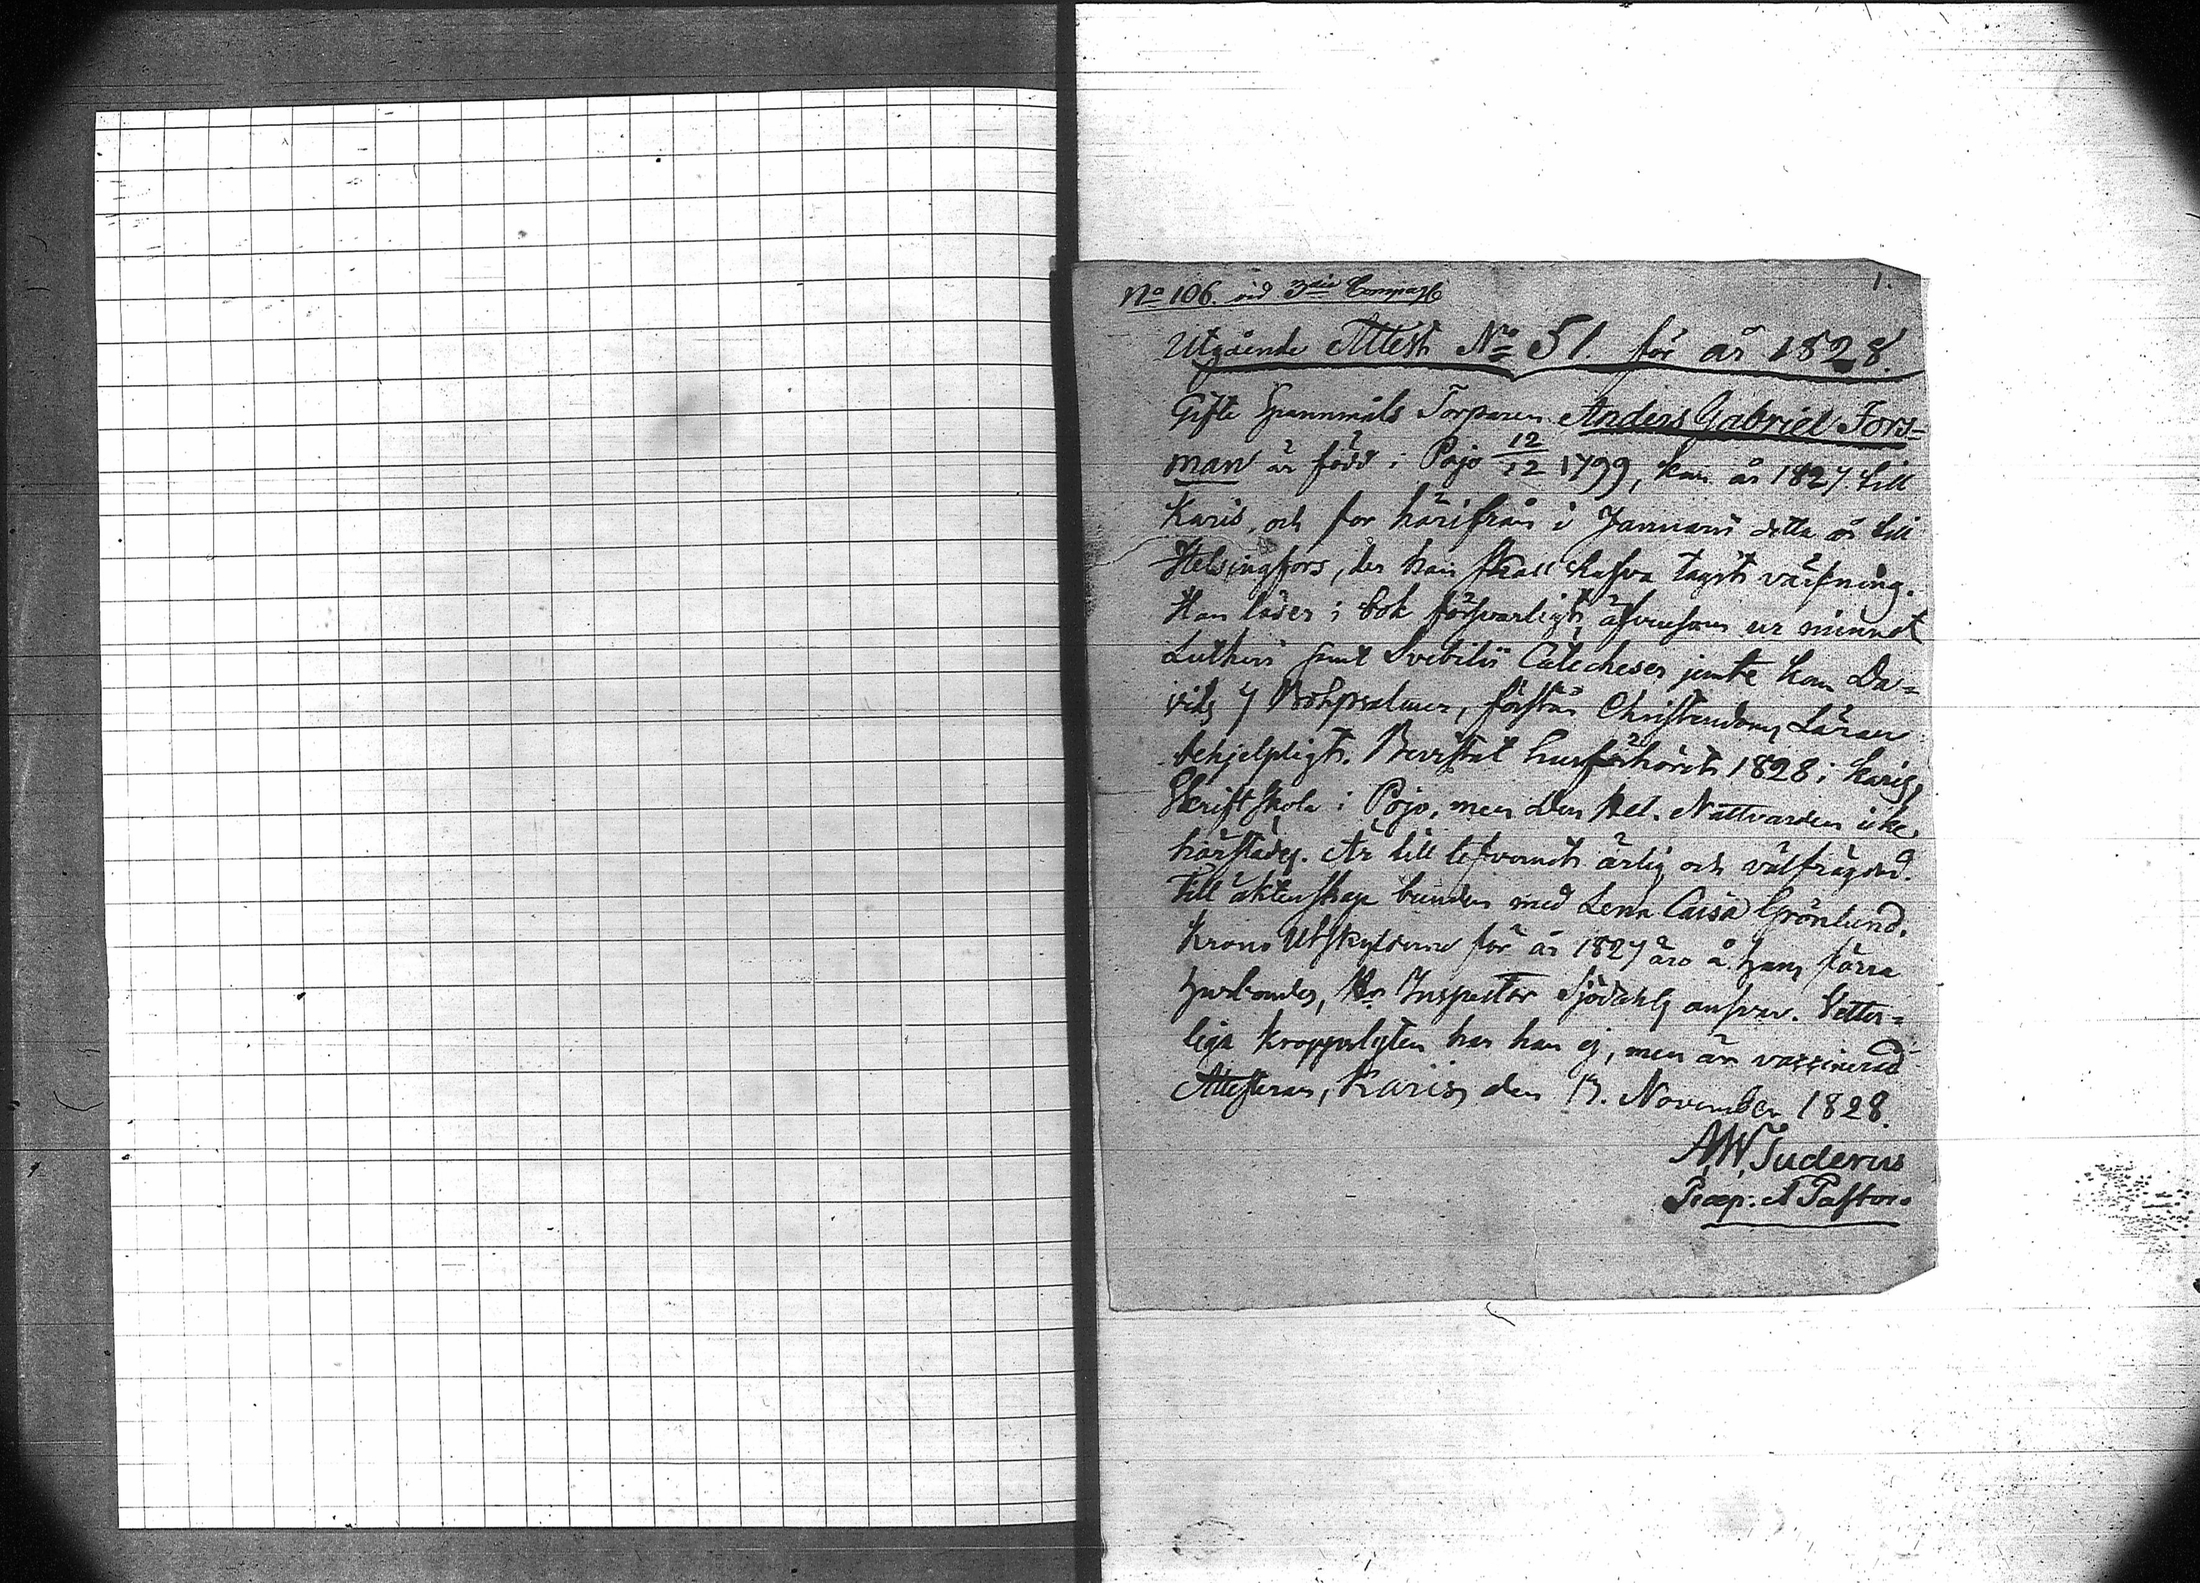 1.
No 106. vid 3die Compag
Utgående Attest No 51. för år 1828.
Gifte Spannmåls Torparen Anders Gabriel Fors=
man är född i Pojo 12/12 1799, kom år 1827 till
Karis, och for härifrån i Januarii detta år till
Helsingfors, der han skall hafva tagit värfning.
Han läser i bok försvarligt, äfvensom ur minnet
Lutheri samt Svebilii Catecheser jemte Kon. Da=
vids 7 Botpsalmer, förstår Christendoms Läran
behjelpligt. Bevistat husförhöret 1828 i Karis,
Skriftskola i Pojo, men den Hel. Nattvarden icke
härstädes. Är till lefvernet ärlig och välfrägdad.
Till äktenskap bunden med Lena Caisa Grönlund.
Krono Utskylderne för år 1827 äro å hans förra
husbondes, Hr Inspector Sjödahls ansvar. Vetter=
liga kroppslyten har han ej, men är vaccinerad
Attesterar, Karis den 13. November 1828.
A. W. Tuderus
Præp. & Pastor.